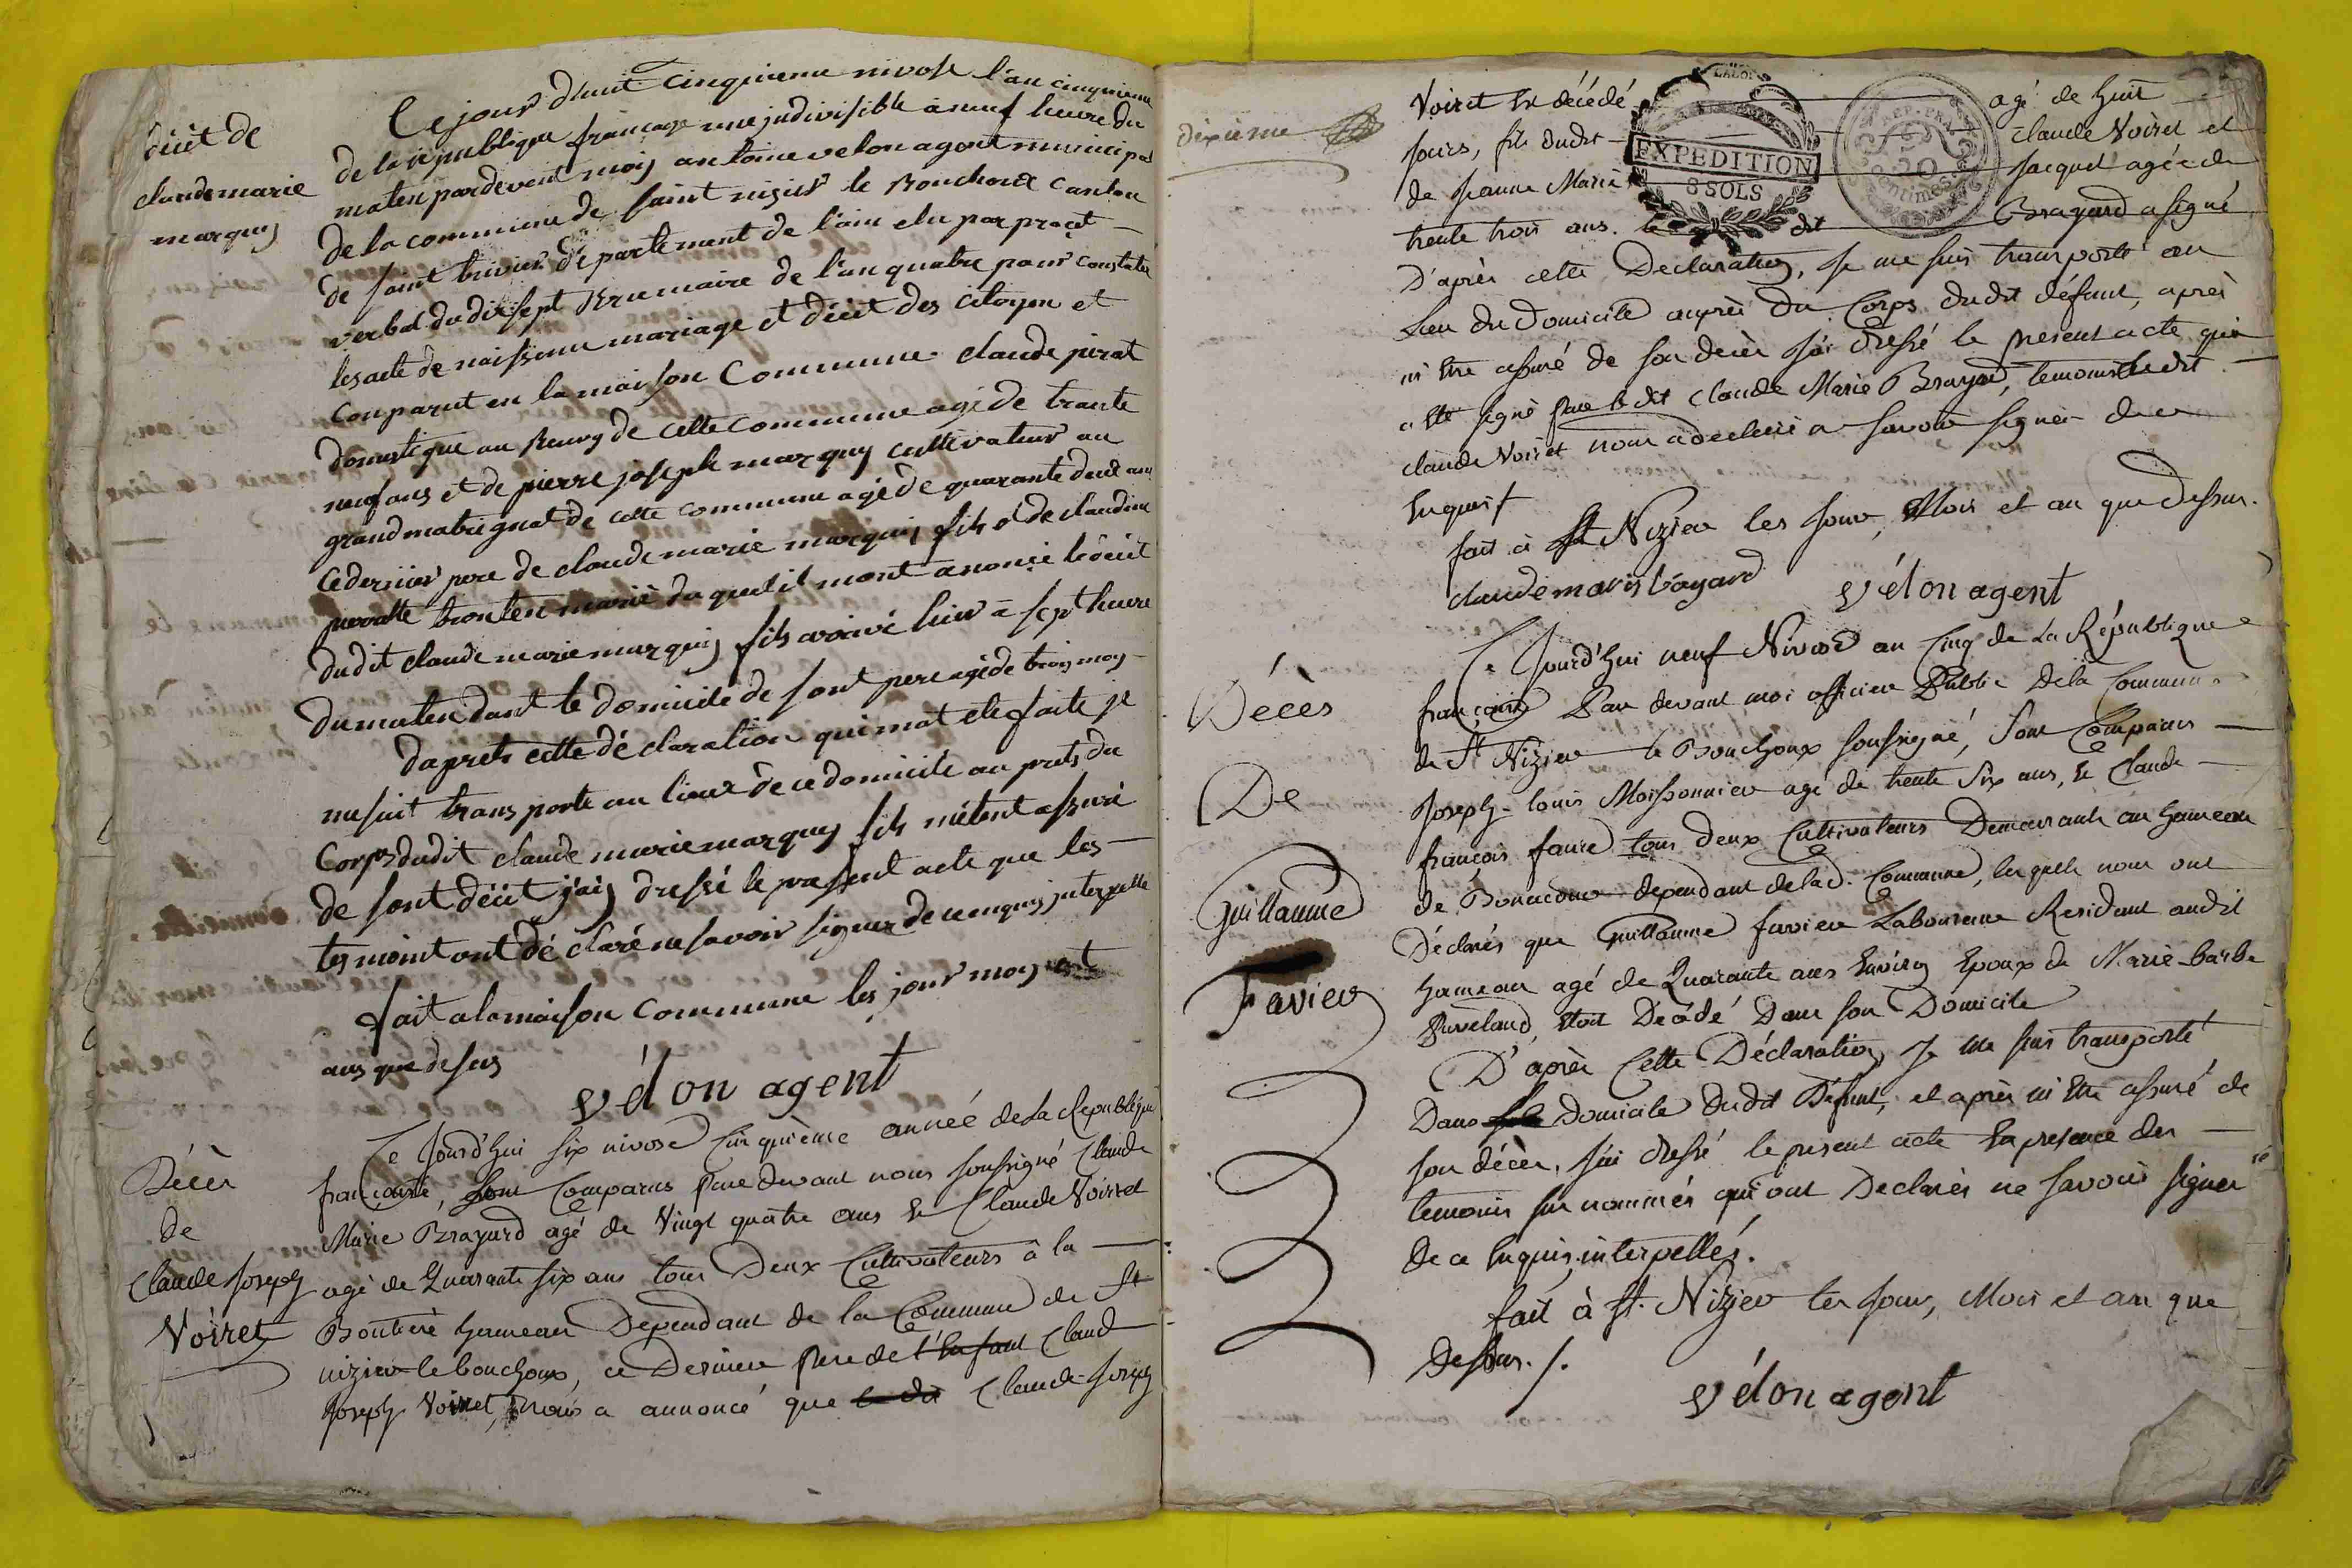 décét de
claude marie
marquis
Ce jour d'huit cinquieme nivose l'an cinquieme
de la republique francaise une jndivisible à neuf heure du
maten pardevent moy antoine velon agent municipal
de la commune de saint nisier le Bouchoux canton
de saint trivier département de l'ain elu par procet
verbal du dixsept Brumaire de l'an quatre pour constater
les acte de naissanse mariage et décét des citoyen et
comparut en la maison Commune claude perat
domestique au bourg de cette commune agé de trante
neuf ans et de pierre joseph marquis cultivateur au
grand matrignat de cette commune agé de quarante deux ans
ce dernier pere de claude marie marquis fils et de claudine
marié du quel il mont anoncé le décét
dudit claude marie marquis fils arrivé hier à sept heure
du maten dant le domicile de sont pere agé de trois moy
daprets cette déclaration qui mat eté faite je
me suit transporté au lieux de ce domicile au prets du
corps dudit claude marie marquis fils métent assuré
de sont décét j'aij dressé le present acte que les
tesmoint ont déclaré ne savoir signer de ce enquis jnterpellé
fait a la maison commune les jour moy et
ans que desus
vélon agent
Décès
de
Claude Joseph
Voiret
Ce Jourd'hui six nivose cinquième année de la Republique
francaise, sont Comparus pare devant nous soussigné Claude
Marie Brayard agé de Vingt quatre ans Et Claude Voiret
agé de Quarante six ans tous Deux Cultivateurs à la
Boutiere hameau Dependant de la Commune de St
nizier le bouchoux, ce Dernier Pere de l'Enfant Claud
Joseph Voiret, nous a annoncé que le dit Claude Joseph
dixieme
Voiret Est décédé agé de huit
jours, fils dudit claude Voiret et
de Jeanne Marie Jacquet agée de
trente trois ans. le dit Brayard a signé
LA LOI
EXPEDITION
8 SOLS
REP. FRA.
20
Centimes
D'après cette Declaration, Je me suis transporté au
Lieu du Domicile auprès du Corps dudit défunt, après
m'être assuré de son decès j'ai dressé le present acte qui
a Eté signé par le dit Claude Marie Brayard, temoins le dit
claude Voiret nous a declaré ne savoir signer de ce
Enquis /
fait à St Nizier les Jour, Mois et an que Dessus.
claude marie brayard vélon agent
Décès
De
Guillaume
Favier
Ce Jourd'hui neuf Nivose an Cinq de La République
francaise Par devant moi officier Public De la Commune
de St Nizier le Bouchoux soussigné, Sont Comparus
Joseph-louis Moissonnier agé de trente Six ans, Et Claude
françois faure tous deux Cultivateurs Demeurants au hameau
de dependant de lad. Commune, lesquels nous ont
Déclarés que Guillaume favier Laboureur Residant audit
hameau agé de Quarante ans Environ Epoux de Marie-barbe
étoit Décédé Dans son Domicile
D'après Cette Déclaration, Je me suis transporté
Dans domicile dudit Défunt, et après m'être assuré de
son décès, j'ai dressé le present acte En presence des
temoins sus nommés qui ont Declarés ne savoir signer
de ce Enquis interpellés.
fait à St. Nizier les Jour, Mois et an que
Dessus. /.
vélon agent